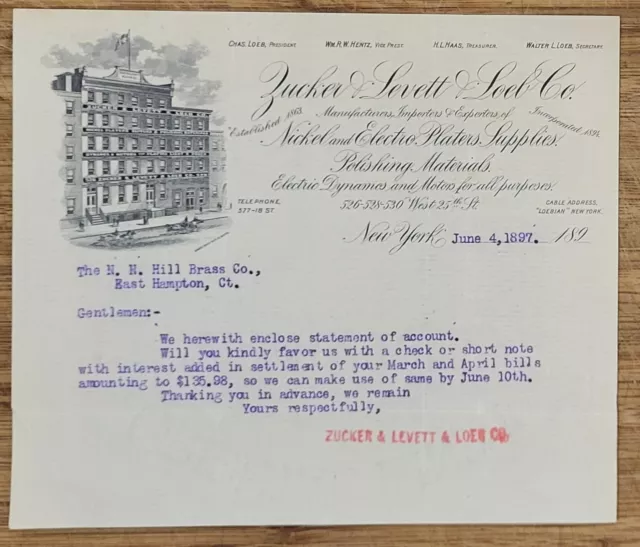 CHAS. LOEB, PRESIDENT. WM. H. W. HENTZ, VICE PREST. H. L. HAAS, TREASURER. WALTER L. LOEB, SECRETARY.
Zucker & Levett & Loeb Co.
Manufacturers, Importers & Exporters, of
Established 1863. Incorporated 1891.
Nickel and Electro Platers Supplies.
Polishing Materials.
Electric Dynamos and Motors for all purposes.
TELEPHONE, 577-18 ST.
526-528-530 West 25th St.
CABLE ADDRESS, "LOEBIAN" NEW YORK.
New York June 4, 1897. 189
The N. N. Hill Brass Co.,
East Hampton, Ct.
Gentlemen:-
We herewith enclose statement of account.
Will you kindly favor us with a check or short note
with interest added in settlement of your March and April bills
amounting to $135.98, so we can make use of same by June 10th.
Thanking you in advance, we remain
Yours respectfully,
ZUCKER & LEVETT & LOEB CO.